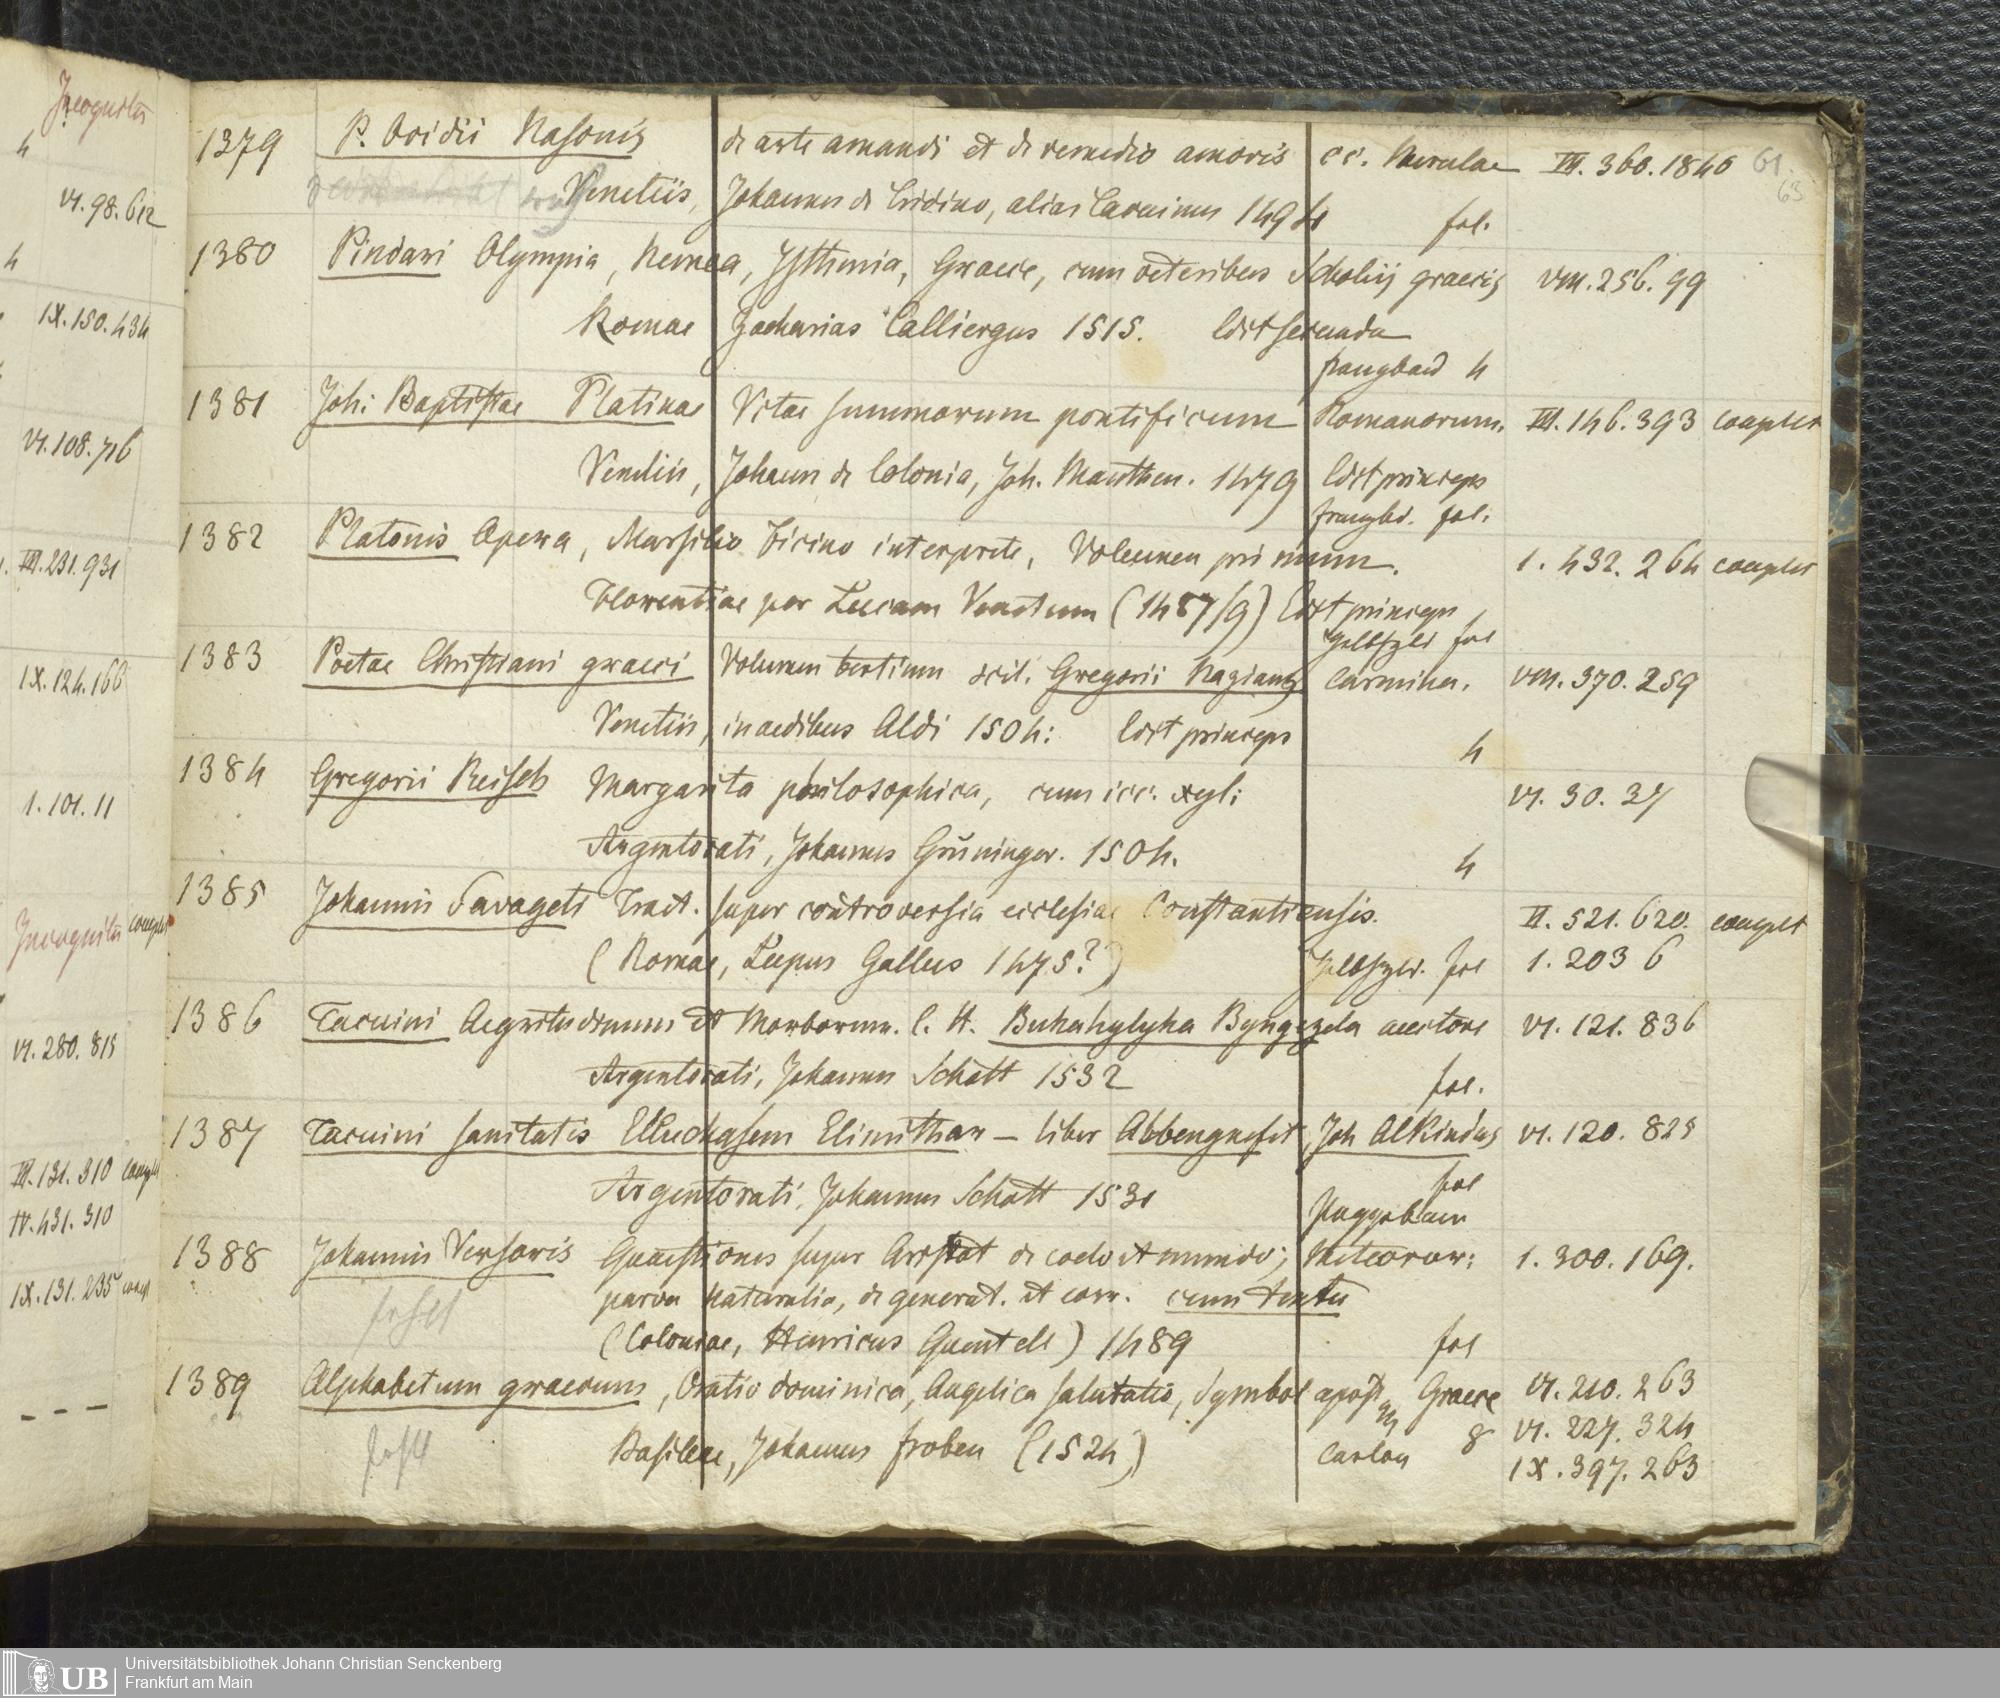 Incognitus
4
VI. 98. 612
4
IX. 150. 434
VI. 108. 716
III. 231. 931
IX. 124. 166
1. 101. 11
Incognitus complet
VI. 280. 815
III. 131. 310 complet
IV. 431. 310
IX. 131. 235 complet
- - -
61.
63
1379 P. Ovidii Nasonis de arte amandi et de remedio amoris cc. Merulae III. 360. 1840
Venetiis, Johannes de Cridino, alias Tacuinus 1494 fol.
1380 Pindari Olympia, Nemea, Isthmia, Graece, cum veteribus Scholiis graecis VIII. 256. 99
Romae Zacharias Calliergus 1515. Edit secunda
franzband 4
1381 Joh: Baptistae Platinae Vitae summorum pontificum Romanorum. III. 146. 393 complet
Venetiis, Johann de Colonia, Joh. Manthen. 1479 Edit princeps
franzbd. fol.
1382 Platonis Opera, Marsilio Ficino interprete, Volumen primum. 1. 432. 264 complet
Florentiae per Laurentium Venetum (1487/9) Edit princeps
fol
1383 Poetae Christiani graeci Volumen tertium scil. Gregorii Nazianz Carmina. VIII. 370. 259
Venetiis, in aedibus Aldi 1504: Edit princeps 4
1384 Gregorii Reisch Margarita philosophica, cum icc. xyl: VI. 30. 37
Argentorati, Johannes Grüninger. 1504. 4
1385 Johannis Savageti Tract. super controversia ecclesiae Constantiensis. II. 521. 620. complet
(Romae, Lupus Gallus 1475?) fol 1. 203 6
1386 Tacuini Aegritudinum et Morborum. C. H. Buhahylyha Byngezla auctore VI. 121. 836
Argentorati, Johannes Schott 1532 fol.
1387 Tacuini sanitatis Elluchasem Elimithar — liber Abbenguefit Joh Alkindus VI. 120. 825
Argentorati, Johannes Schott 1531 fol
Pappeband
1388 Johannis Versoris Quaestiones super Aristot de coelo et mundo; Meteoror: 1. 300. 169.
parva naturalia, de generat. et corr. cum textu
fehlt
(Coloniae, Henricus Quentell) 1489 fol
1389 Alphabetum graecum, Oratio dominica, Angelica salutatio, Symbol apost, Graece VI. 210. 263
fehlt
Basileae, Johannes Froben (1524) 8 VI. 227. 324
IX. 397. 263
UB
Universitätsbibliothek Johann Christian Senckenberg
Frankfurt am Main